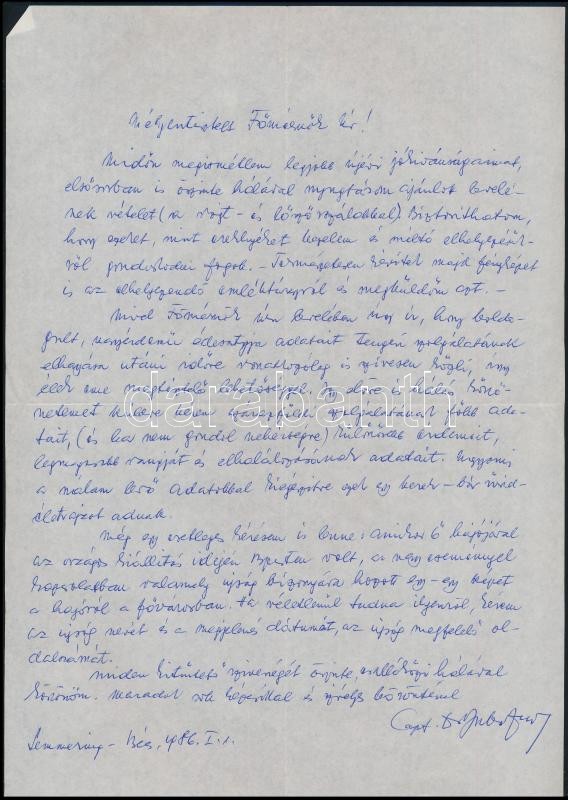 Mélyentisztelt Főmérnök Úr!
Midőn megismétlem legjobb újévi jókívánságaimat,
elsősorban is őszinte hálával nyugtázom ajánlott levelé-
nek vételét (a és Biztosíthatom,
hogy ezeket, mint ereklyéket kezelem és méltó elhelyezésük-
ről gondoskodni fogok. – Természetesen készítek majd fényképet
is az elhelyezendő emléktárgyról és megküldöm azt. –
Mivel Főmérnök Úr levelében úgy ír, hogy boldo-
gult, édesatyja adatait tengeri szolgálatának
elhagyása utáni időre vonatkozólag is szívesen közli, úgy
élek eme megtisztelő lehetőséggel. Jó előre is hálás köszö-
netemet kérem szolgálatának főbb ada-
tait, (és ha nem gondol nehézségre) különösebb érdemeit,
legmagasabb rangját és elhalálozásának adatait. Ugyanis
a nálam levő adatokkal kiegészítve ezek egy kerek – bár rövid –
életrajzot adnak.
Még egy esetleges kérésem is lenne: amikor ő hajójával
az országos kiállítás idején Bpesten volt, a nagy eseménnyel
kapcsolatban valamely újság bizonyára hozott egy-egy képet
a hajóról a fővárosban. Ha véletlenül tudna ilyenről, kérem
az újság nevét és a megjelenés dátumát, az újság megfelelő ol-
dalszámát.
Minden kitüntető szívességét őszinte, hálával
köszönöm. Maradok sok kézcsókkal és szívélyes üdvözlettel
Capt.
Semmering – Bécs, 1986. I. 1.
darabanth